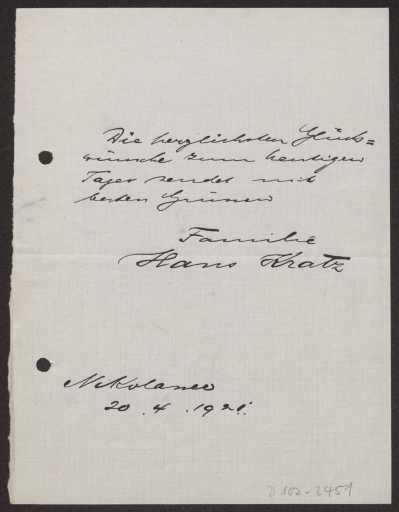 Die herzlichsten Glück=
wünsche zum heutigen
Tage sendet mit
besten Grüssen
Familie
Hans Kratz
Nikolassee
20.4.1921.
D 102-2459